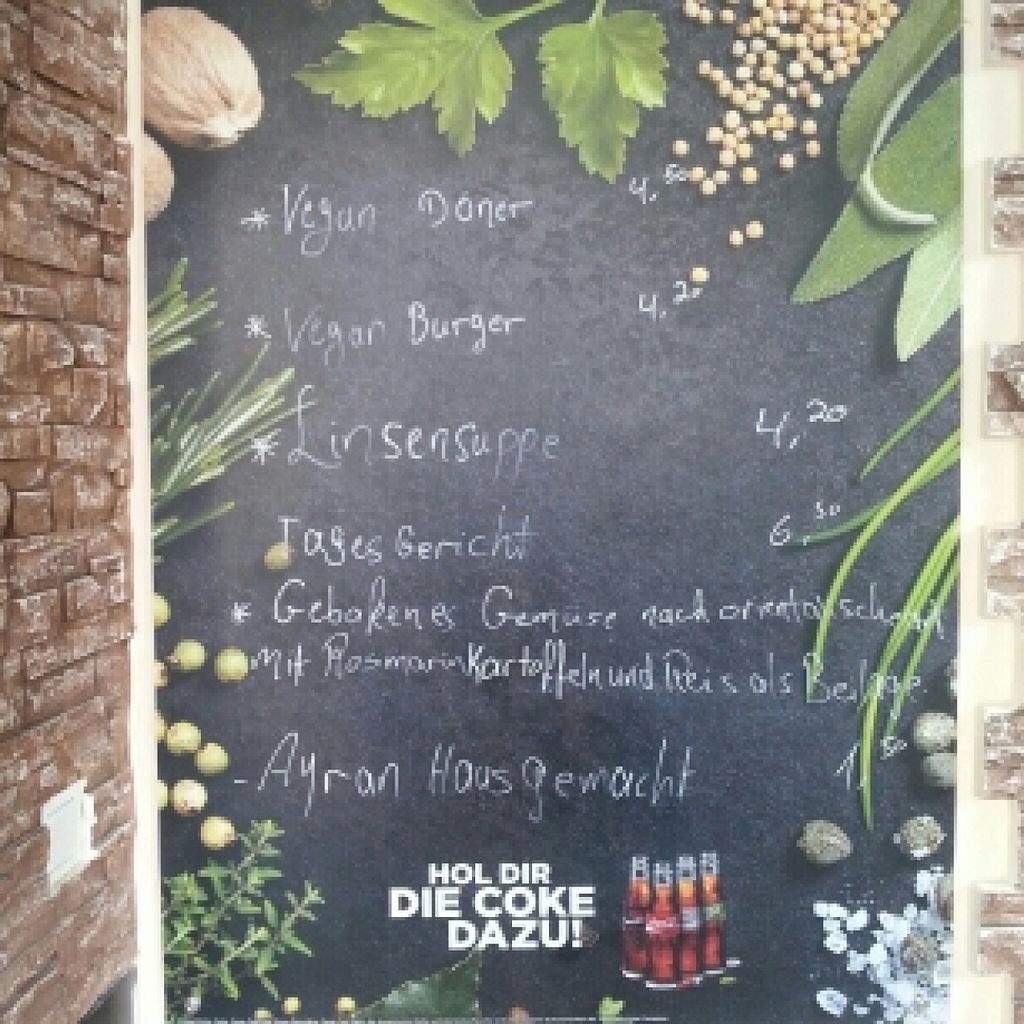 * Vegan Döner 4,50
* Vegan Burger 4,20
* Linsensuppe 4,20
Tages Gericht 6,50
* Gebakenes Gemüse nach
mit Rosmarin Kartoffeln und Reis als Beilage.
- Ayran Hausgemacht 1,50
HOL DIR
DIE COKE
DAZU!